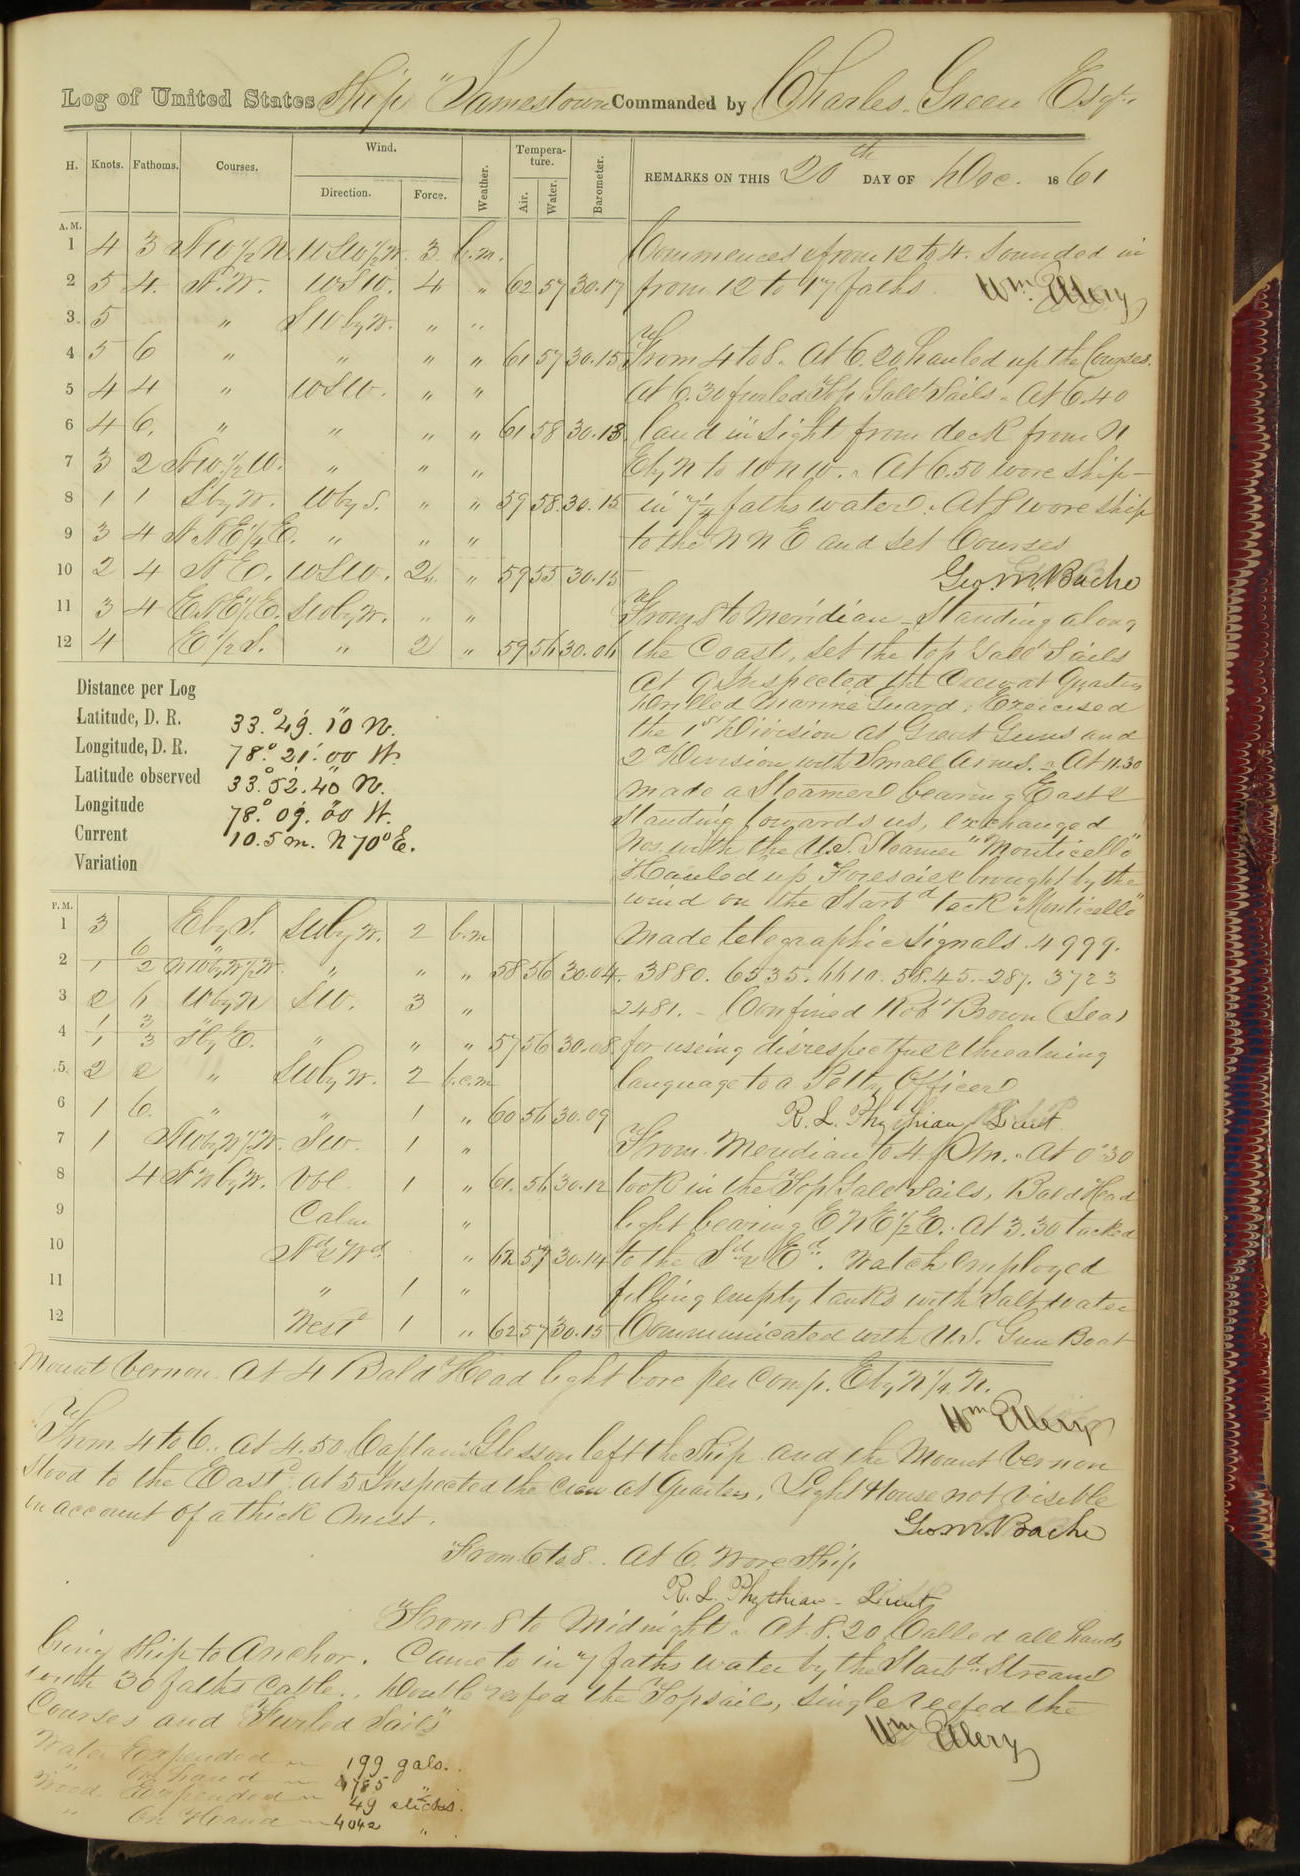 Log of United States Ship "Jamestown Commanded by Charles Green Esqr.
H. Knots. Fathoms. Courses. Wind. Direction. Force. Weather. Temperature. Air. Water. Barometer.
REMARKS ON THIS 20th DAY OF Dec. 1861
A.M.
1 4 3 NW 1/2 N. WSW 1/2 W. 3 b.m.
2 5 4 N.W. WSW. 4 " 62 57 30.17
3 5 " SW by W. " "
4 5 6 " " " " 61 57 30.15
5 4 4 " WSW. " "
6 4 6 " " " " 61 58 30.13
7 3 2 NW 1/2 W. " " "
8 1 1 S by W. W by S. " " 59 58 30.15
9 3 4 NNE 1/4 E. " " "
10 2 4 N E. WSW. 2 " 59 55 30.15
11 3 4 ENE 1/2 E. SW by W. " "
12 4 E 1/2 S. " 2 " 59 56 30.06
Commences & from 12 to 4. Sounded in
from 12 to 17 faths.
Wm. Ellery
From 4 to 8. At 6.20 hauled up the Courses.
At 6.30 furled Top Gallt Sails. At 6.40
land in sight from deck from N
E by N to WNW. At 6.50 wore ship
in 7 1/4 faths water. At 8 wore ship
to the NNE and set Courses
Geo. M. Bache
From 8 to Meridian - Standing along
the Coast, set the top Gallt Sails
At 9 Inspected the Crew at Quarters
Drilled Marine Guard; Exercised
the 1st Division at Great Guns and
2d Division with Small Arms. At 11.30
made a Steamer bearing East &
Standing towards us, exchanged
Nos. with the U.S. Steamer "Monticello"
Hauled up Foresail & brought by the
wind on the Starbd tack "Monticello"
made telegraphic signals. 4999.
3880. 6535. 6610. 5845. 287. 3723
2481. - Confined Robt Brown (Sea)
for using disrespectful & threatning
language to a Petty Officer
R. L. Phythian Lieut.
Distance per Log
Latitude, D. R. 33° 49' 10" N.
Longitude, D. R. 78° 21' 00 W.
Latitude observed 33° 52' 40" N.
Longitude 78° 09' 00 W.
Current 10.5 m. N 70° E.
Variation
P.M.
1 3 E by S. SW by W. 2 b.m
2 1 6 2 NW by W 1/2 W. " " " 58 56 30.04
3 2 6 W by N SW. 3 "
4 1 1 3 3 " S by E. " " " 57 56 30.08
5 2 2 " SW by W. 2 b.c.m
6 1 6 " " 1 " 60 56 30.09
7 1 NW by W 1/2 W. SW. 1 "
8 4 N N by W. Vble 1 " 61 56 30.12
9 Calm "
10 Nd & Wd " 62 57 30.14
11 " 1 "
12 West 1 " 62 57 30.15
From Meridian to 4 P.M. At 0.30
took in the Top Gallt Sails, Bald Head
light bearing ENE 1/2 E. At 3.30 tacked
to the Sd & Ed. Watch employed
filling empty tanks with Salt water
Communicated with U.S. Gun Boat
Mount Vernon. At 4 Bald Head light bore per Comp. E by N 1/4 N.
Wm Ellery
From 4 to 6. At 4.50 Captain Glisson left the Ship and the Mount Vernon
stood to the Eastd. At 5 Inspected the crew at Quarters. Light House not visible
on account of a thick Mist.
Geo. M. Bache
From 6 to 8. At 6. Wore Ship
R. L. Phythian - Lieut
From 8 to Midnight. At 8.20 Called all hands
bring Ship to Anchor. Came to in 7 faths water by the Starbd Stream
with 30 faths Cable. Double reefed the Topsails, Single reefed the
Courses and Furled Sails"
Wm Ellery
Water Expended 199 gals.
" On hand 4785 "
Wood Expended 49 sticks.
" On Hand 4042 "